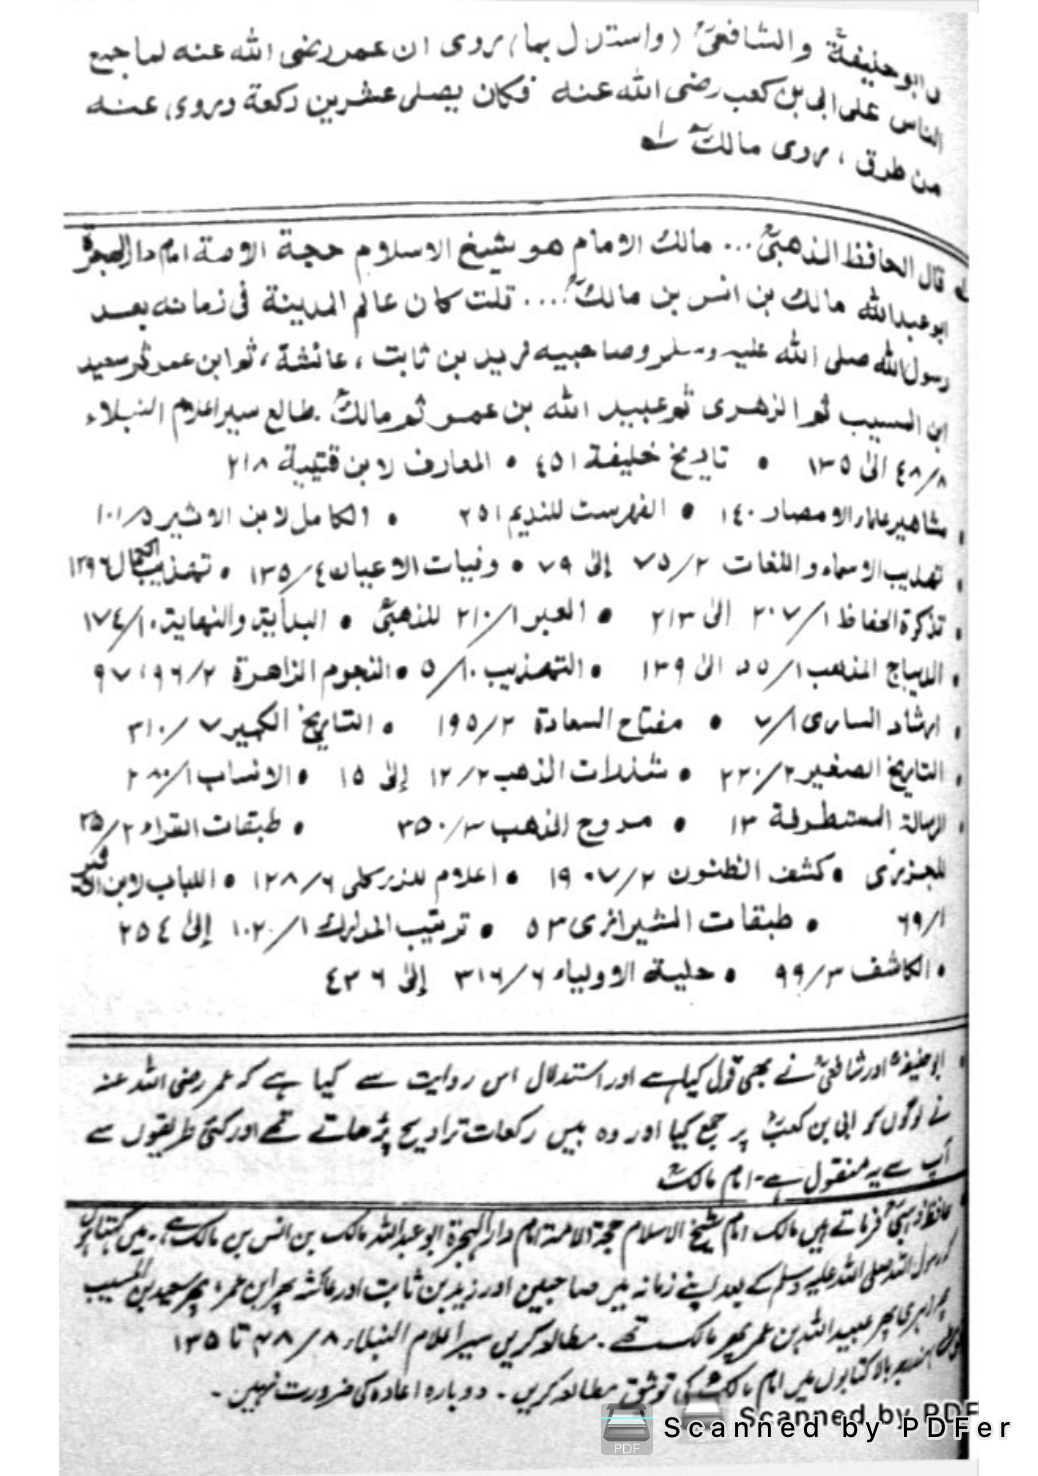 وابوحنيفةؒ والشافعیؒ (واستدل بما) روی ان عمر رضی الله عنه لما جمع
الناس علی ابی بن کعب رضی الله عنه فکان یصلی عشرین رکعة وروی عنه
من طرق ، روی مالکؒ لہ
لہ قال الحافظ الذهبیؒ ... مالك الامام هو شیخ الاسلام حجة الامة امام دار الهجرة
ابو عبدالله مالك بن انس بن مالكؒ .... قلت کان عالم المدینة فی زمانه بعد
رسول الله صلی الله علیه وسلم وصاحبیه زید بن ثابت ، عائشة ، ثم ابن عمر ثم سعید
ابن المسیب ثم الزهری ثم عبید الله بن عمر ثم مالكؒ . طالع سیر اعلام النبلاء
۴۸/۸ الیٰ ۱۳۵ • تاریخ خلیفة ٤٥١ • المعارف لابن قتیبة ۲۱۸
• مشاهیر علماء الامصار ١٤٠ • الفهرست للندیم ۲۵۱ • الکامل لابن الاثیر ۱۰۱/۵
• تهذیب الاسماء واللغات ۷۵/۲ إلیٰ ۷۹ • وفیات الاعیان ۱۳۵/٤ • تهذیب الکمال ۱۲۹٦
• تذکرة الحفاظ ۲۰۷/۱ الیٰ ۲۱۳ • العبر ۲۱۰/۱ للذهبیؒ • البدایة والنهایة ۱۷٤/۱۰
• الدیباج المذهب ۵۵/۱ الیٰ ۱۳۹ • التهذیب ۵/۱۰ • النجوم الزاهرة ۹٦/۲، ۹۷
• ارشاد الساری ۷/۱ • مفتاح السعادة ۱۹۵/۲ • التاریخ الکبیر ۳۱۰/۷
• التاریخ الصغیر ۲۲۰/۲ • شذرات الذهب ۱۲/۲ إلیٰ ۱۵ • الانساب ۲۸۰/۱
• الرسالة المستطرفة ۱۳ • مروج الذهب ۳۵۰/۳ • طبقات القراء ۳۵/۲
للجزری • کشف الظنون ۱۹۰۷/۲ • اعلام للزرکلی ۱۲۸/٦ • اللباب لابن الاثیر
٦۹/۱ • طبقات الشیرازی ۵۳ • ترتیب المدارك ۱۰۲/۱ إلیٰ ۲۵٤
• الکاشف ۹۹/۳ • حلیة الاولیاء ۳۱٦/٦ إلیٰ ٤۳٦
ابوحنیفہؒ اور شافعیؒ نے بھی قول کیا ہے اور استدلال اس روایت سے کیا ہے کہ عمر رضی اللہ عنہ
نے لوگوں کو ابی بن کعبؓ پر جمع کیا اور وہ بیس رکعات تراویح پڑھاتے تھے اور کئی طریقوں سے
آپ سے یہ منقول ہے۔ امام مالکؒ
حافظ ذہبیؒ فرماتے ہیں مالک امام شیخ الاسلام حجۃ الامۃ امام دار الہجرۃ ابو عبداللہ مالک بن انس بن مالک ہے۔ میں کہتا ہوں
کہ رسول اللہ صلی اللہ علیہ وسلم کے بعد اپنے زمانہ میں صاحبین اور زید بن ثابت اور عائشہ پھر ابن عمر، پھر سعید بن المسیب
پھر زہری پھر عبید اللہ بن عمر پھر مالک تھے۔ مطالعہ کریں سیر اعلام النبلاء ۴۸/۸ تا ۱۳۵
مندرجہ بالا کتابوں میں امام مالکؒ کی توثیق مطالعہ کریں۔ دوبارہ اعادہ کی ضرورت نہیں۔
Scanned by PDF
PDF Scanned by PDFer